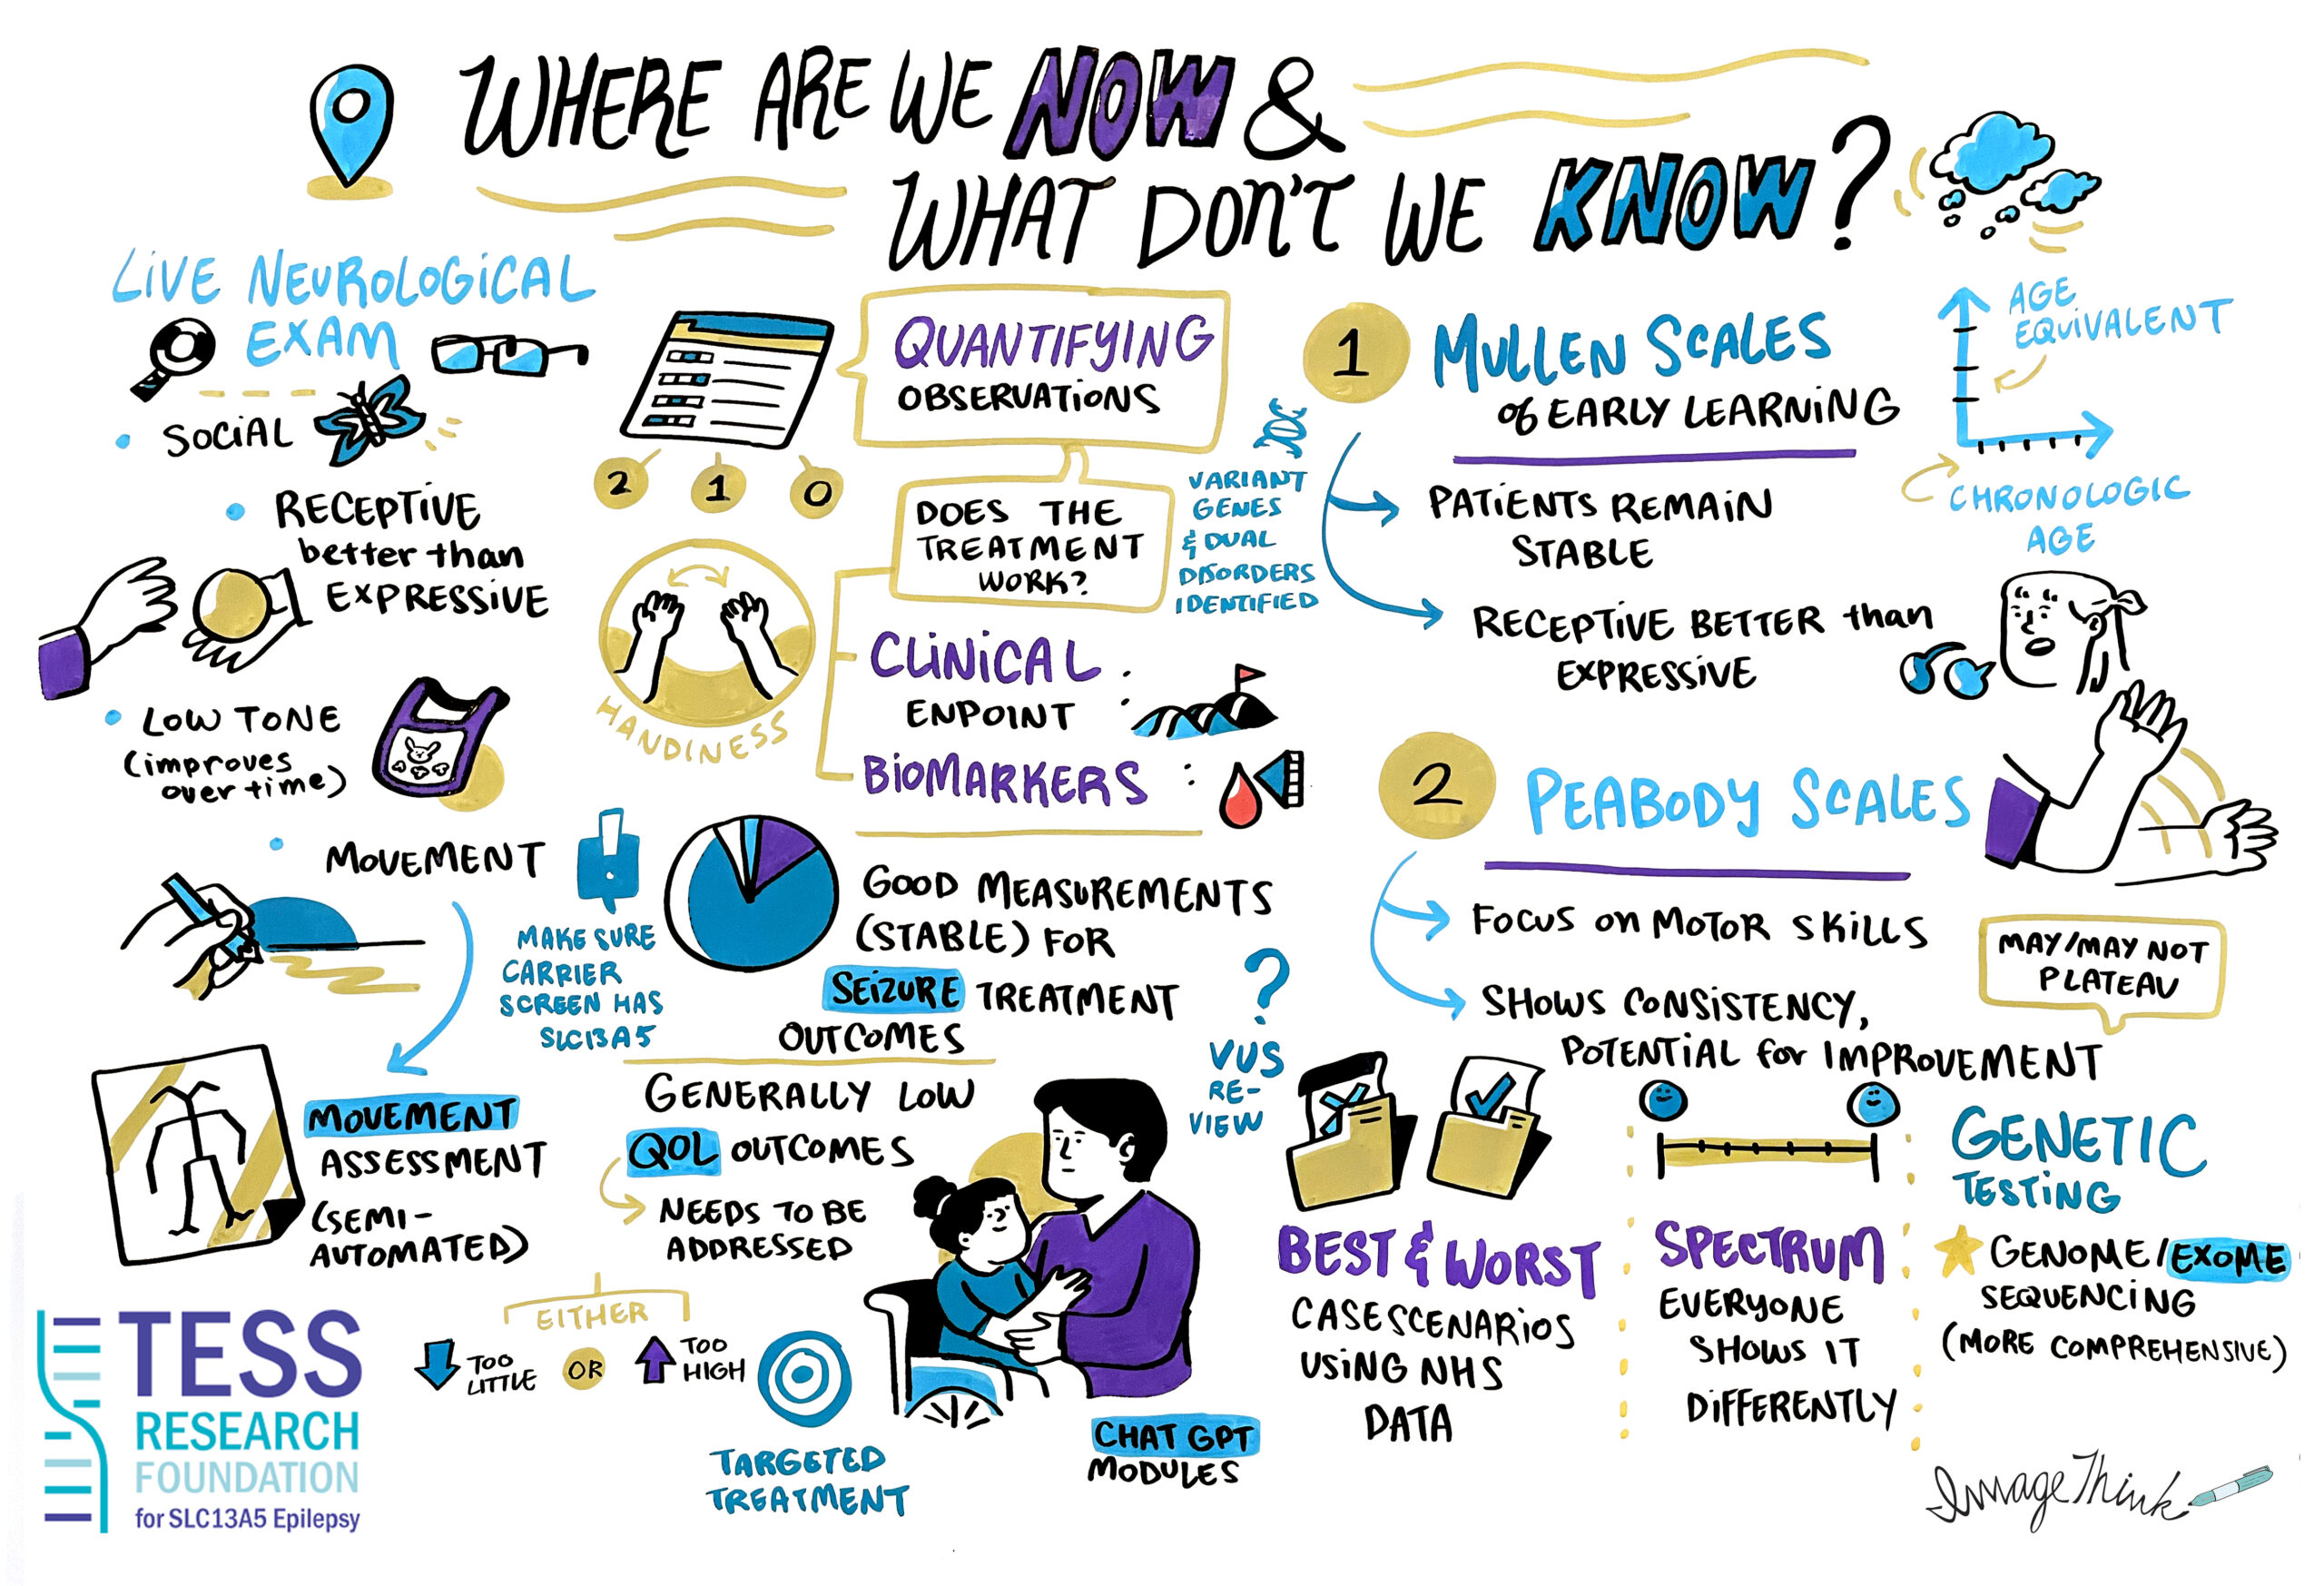 WHERE ARE WE NOW &
WHAT DON'T WE KNOW?
LIVE NEUROLOGICAL
EXAM
SOCIAL
RECEPTIVE
better than
EXPRESSIVE
LOW TONE
(improves
over time)
MOVEMENT
MOVEMENT
ASSESSMENT
(SEMI-
AUTOMATED)
QUANTIFYING
OBSERVATIONS
2 1 0
DOES THE
TREATMENT
WORK?
HANDINESS
CLINICAL :
ENPOINT
BIOMARKERS :
VARIANT
GENES
& DUAL
DISORDERS
IDENTIFIED
MAKE SURE
CARRIER
SCREEN HAS
SLC13A5
GOOD MEASUREMENTS
(STABLE) FOR
SEIZURE TREATMENT
OUTCOMES
GENERALLY LOW
QOL OUTCOMES
NEEDS TO BE
ADDRESSED
EITHER
TOO
LITTLE
OR
TOO
HIGH
TARGETED
TREATMENT
CHAT GPT
MODULES
1
MULLEN SCALES
of EARLY LEARNING
PATIENTS REMAIN
STABLE
RECEPTIVE BETTER than
EXPRESSIVE
AGE
EQUIVALENT
CHRONOLOGIC
AGE
2
PEABODY SCALES
FOCUS on MOTOR SKILLS
SHOWS CONSISTENCY,
POTENTIAL for IMPROVEMENT
MAY/MAY NOT
PLATEAU
?
VUS
RE-
VIEW
BEST & WORST
CASE SCENARIOS
USING NHS
DATA
SPECTRUM
EVERYONE
SHOWS IT
DIFFERENTLY
GENETIC
TESTING
GENOME/EXOME
SEQUENCING
(MORE COMPREHENSIVE)
TESS
RESEARCH
FOUNDATION
for SLC13A5 Epilepsy
ImageThink